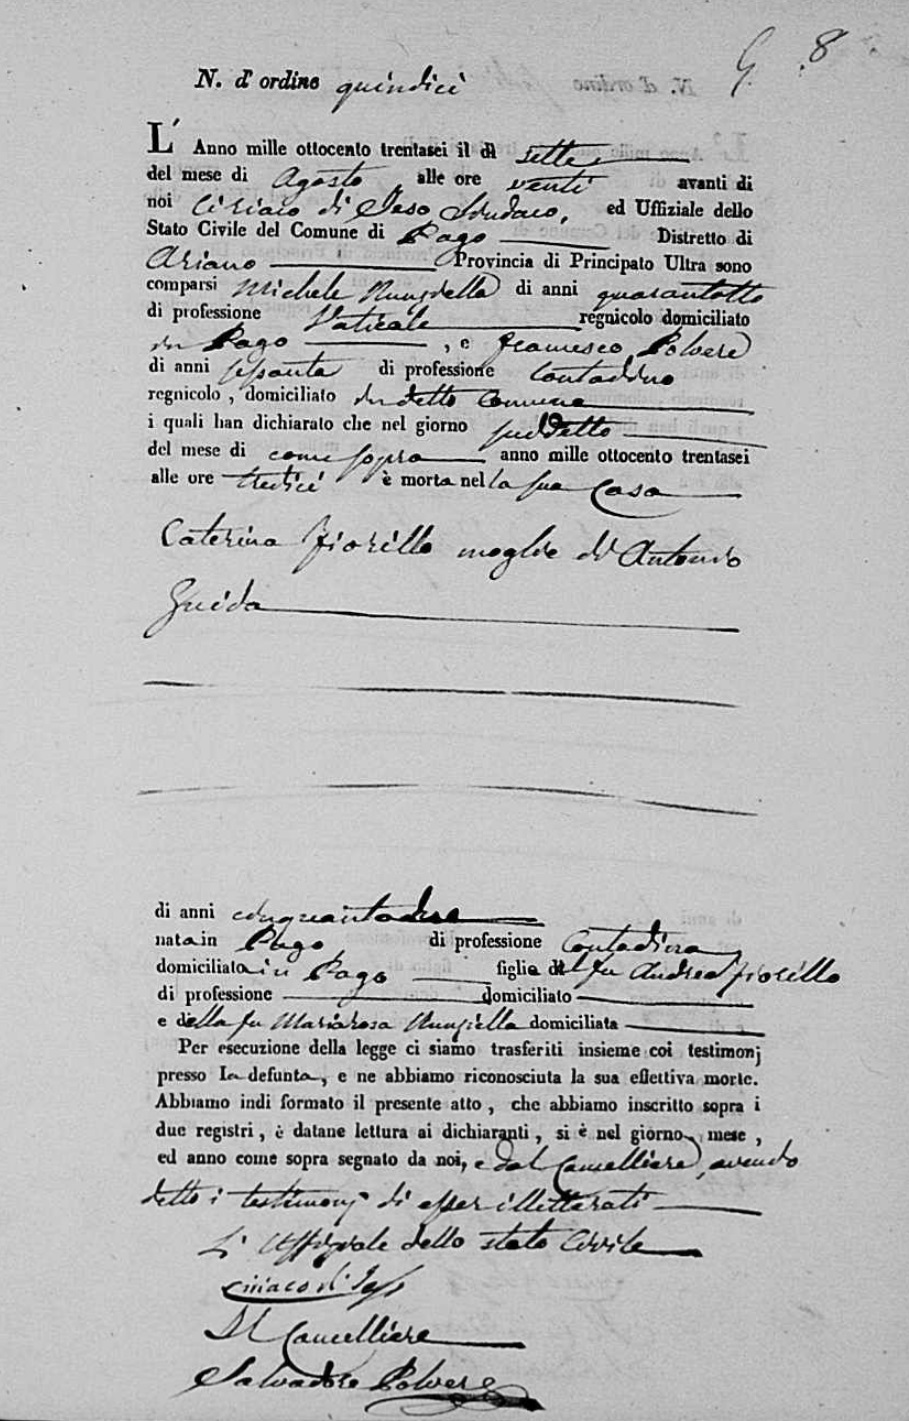 8
N. d' ordine quindici
L' Anno mille ottocento trentasei il dì sette
del mese di Agosto alle ore venti avanti di
noi Ciriaco di Jeso Sindaco, ed Uffiziale dello
Stato Civile del Comune di Pago Distretto di
Ariano Provincia di Principato Ultra sono
comparsi Michele Nunziella di anni quarantotto
di professione Vaticale regnicolo domiciliato
in Pago , e Francesco Polvere
di anni sessanta di professione Contadino
regnicolo , domiciliato in detto Comune
i quali han dichiarato che nel giorno suddetto
del mese di come sopra anno mille ottocento trentasei
alle ore tredici è morta nella sua Casa
Caterina Fiorillo moglie di Antonio
Guida
di anni cinquantadue
nata in Pago di professione Contadina
domiciliata in Pago figlia del fu Andrea Fiorillo
di professione domiciliato
e della fu Mariarosa Nunziella domiciliata
Per esecuzione della legge ci siamo trasferiti insieme coi testimonj
presso la defunta, e ne abbiamo riconosciuta la sua effettiva morte.
Abbiamo indi formato il presente atto , che abbiamo inscritto sopra i
due registri , è datane lettura ai dichiaranti , si è nel giorno, mese ,
ed anno come sopra segnato da noi, e dal Cancelliere, avendo
detto i testimonj di esser illetterati
L' Uffiziale dello stato Civile
Ciriaco di Jeso
Il Cancelliere
Salvadore Polvere